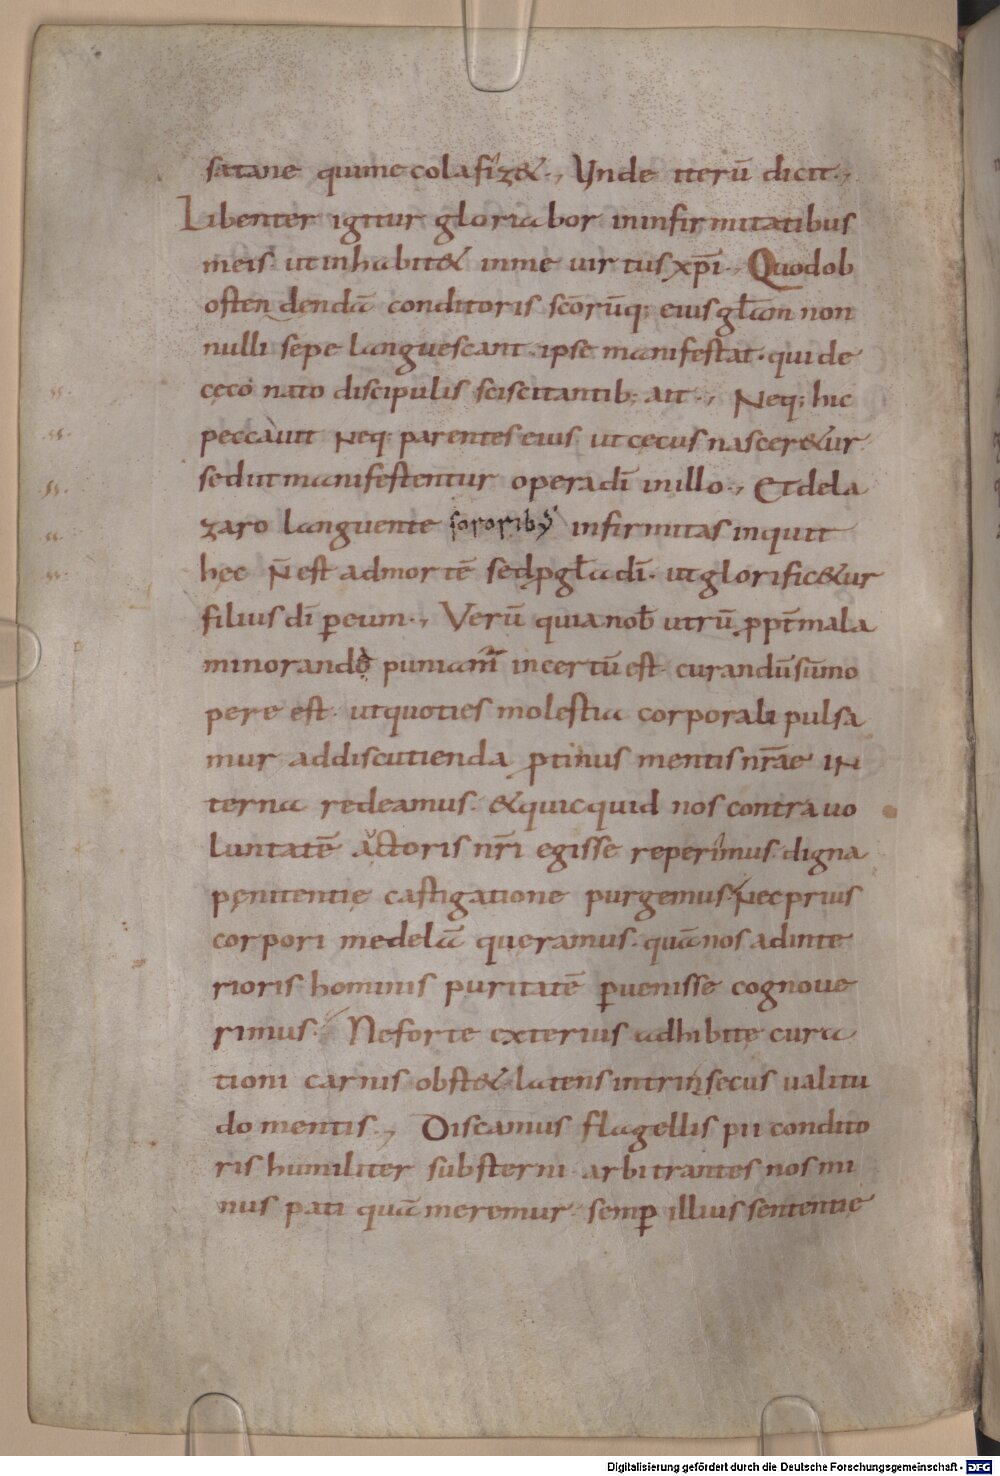 satane quime colafiz&. Unde iterū dicit.,
Libenter igitur gloriabor ininfirmitatibus
meis. utinhabit& inme uirtus xp̄i., Quodob
ostendendā conditoris scōrūq; eius gl̄am non
nulli sepe languescant. ipse manifestat. qui de
cęco nato discipulis sciscitantib; ait., Neq; hic
peccauit Neq; parentes eius. ut cecus nascer&ur.
sedut manifestentur operadī inillo., Et dela
zaro languente sororibꝰ infirmitas inquit
hec N̄ est admortē sed ꝓgl̄a dī. ut glorific&ur
filius dī ꝑeum., Verū quianob̄ utrū ꝓpt̄ mala
minorando puniam̄ incertū est. curandū sūmo
pere est. utquoties molestia corporali pulsa
mur addiscutienda ꝓtinus mentis nr̄ae IN
terna redeamus. &quicquid nos contra uo
luntatē auctoris nr̄i egisse reperimus. digna
pęnitentię castigatione purgemus. Necprius
corpori medelā queramus. quā nos adinte
rioris hominis puritatē ꝑuenisse cognoue
rimus. Neforte exterius adhibitę cura
tioni carnis obst& latens intrinsecus ualitu
do mentis., Discamus flagellis pii condito
ris humiliter substerni. arbitrantes nos mi
nus pati quā meremur. semꝑ illius sententie
Digitalisierung gefördert durch die Deutsche Forschungsgemeinschaft - DFG